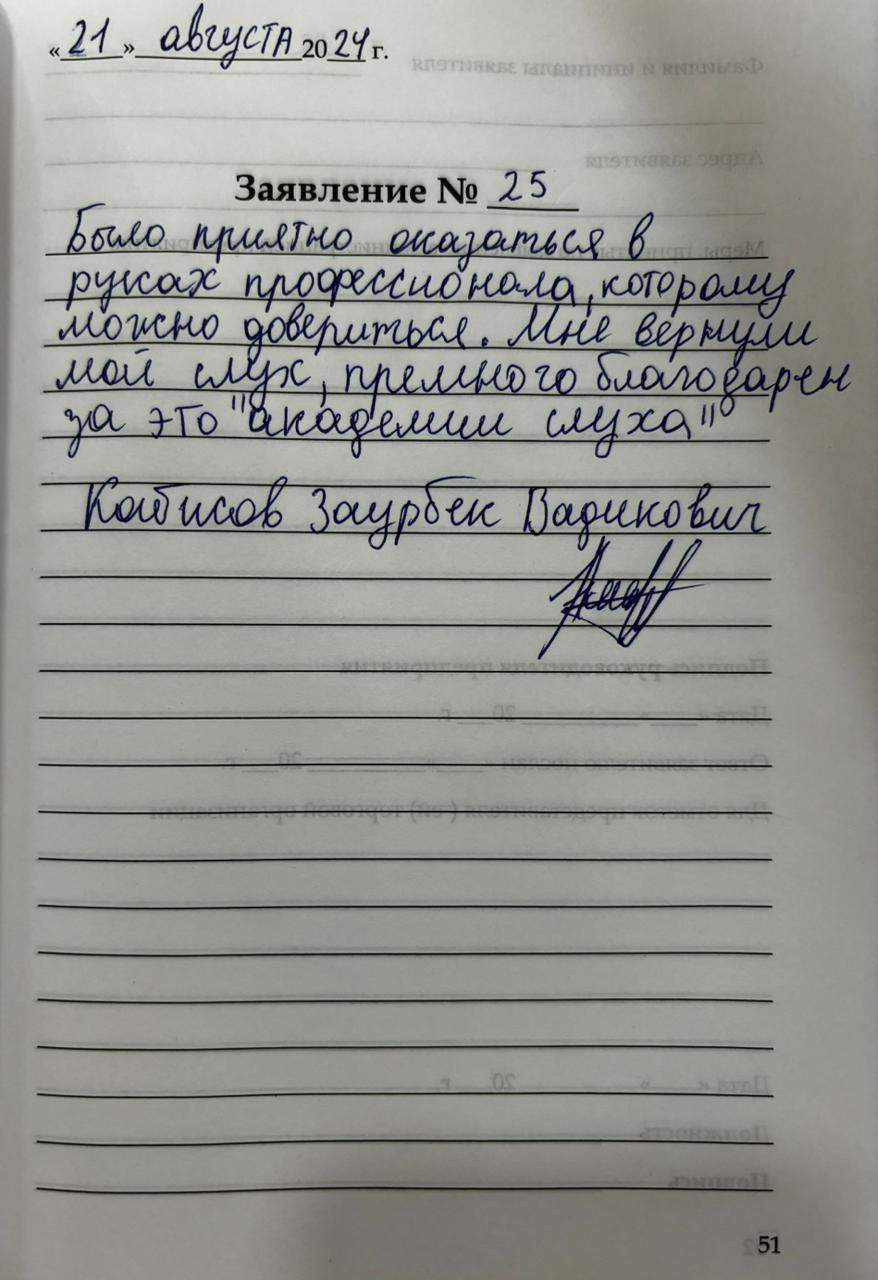 «21» августа 2024 г.
Заявление № 25
Было приятно оказаться в
руках профессионала, которому
можно довериться. Мне вернули
мой слух, премного благодарен
за это "академии слуха"
Кабисов Заурбек Вадикович
51